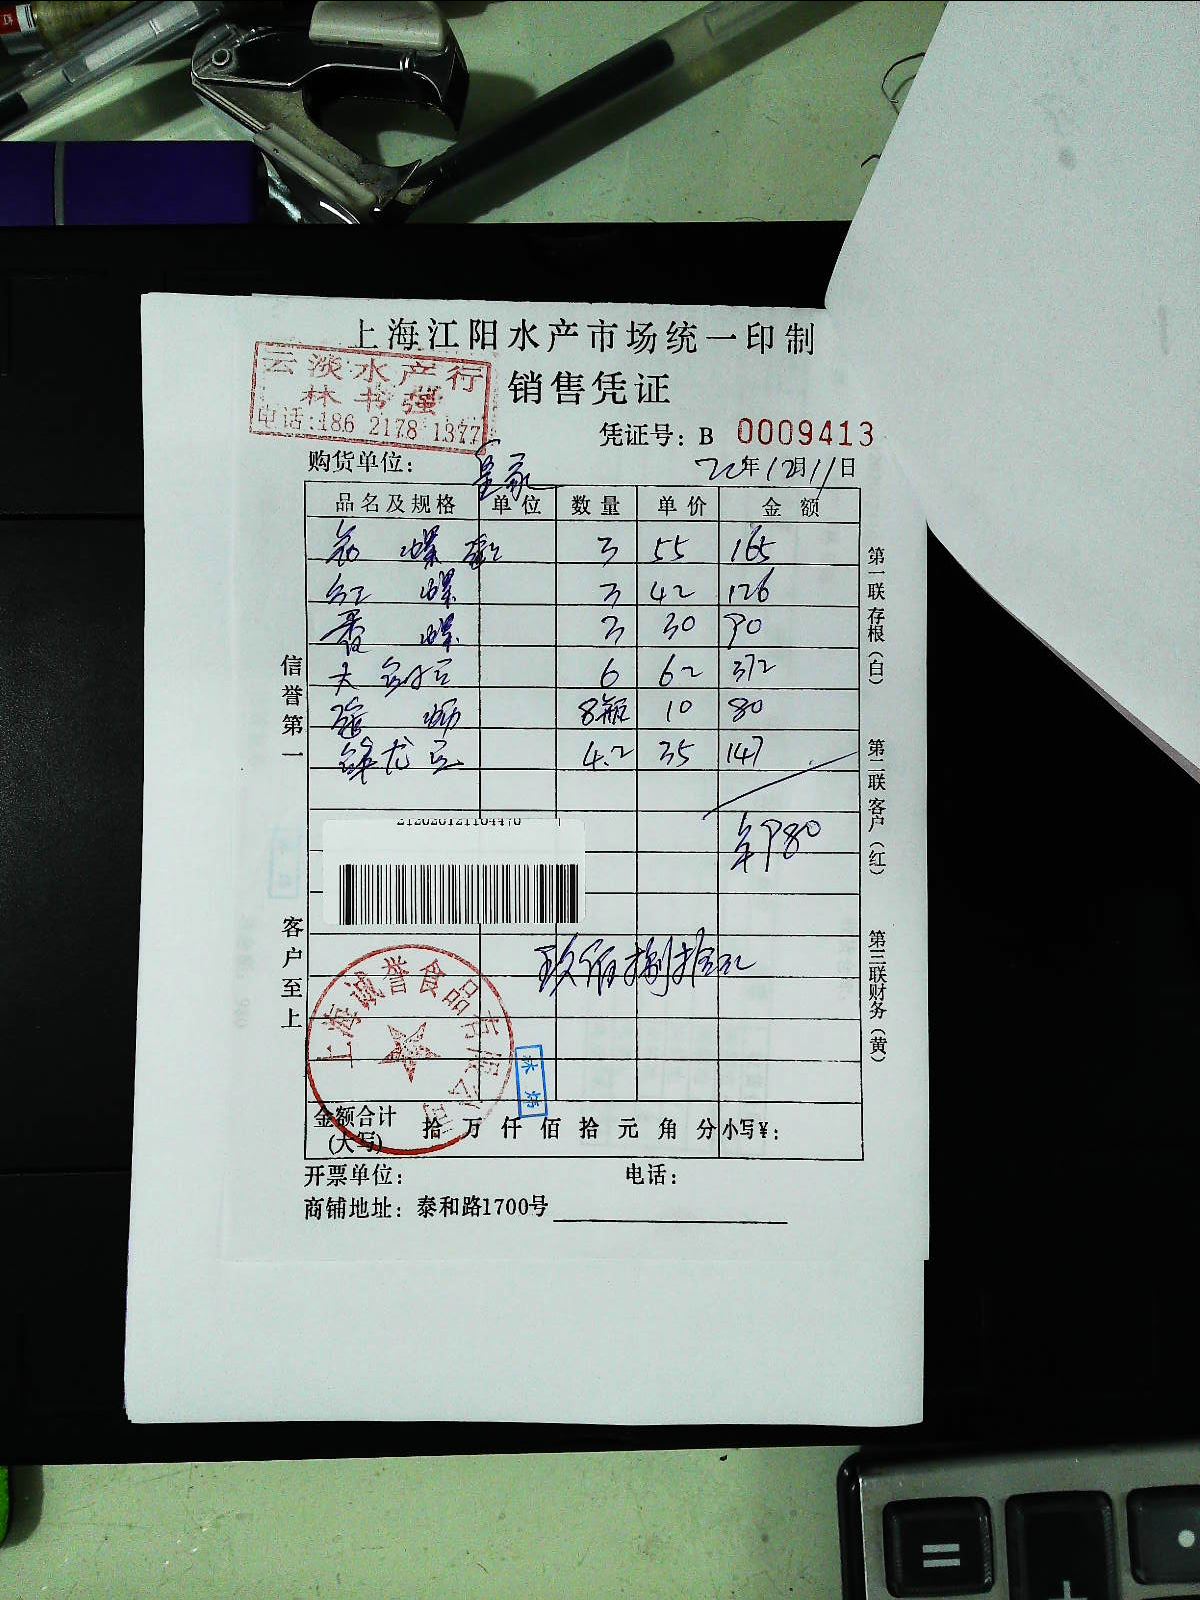 上海江阳水产市场统一印制
云淡水产行
林书强
电话:186 2178 1377
销售凭证
凭证号: B 0009413
购货单位: 皇家
20年12月11日
品名及规格 单位 数量 单价 金额
螺 3 55 165
红螺 3 42 126
香螺 3 30 90
大 6 62 372
8瓶 10 80
龙 4.2 35 147
¥980
212020121104470
玖佰捌拾元
信誉第一
客户至上
第一联存根(白)
第二联客户(红)
第三联财务(黄)
上海诚誉食品有限公司
金额合计
(大写) 拾 万 仟 佰 拾 元 角 分 小写¥:
开票单位: 电话:
商铺地址: 泰和路1700号
=
+